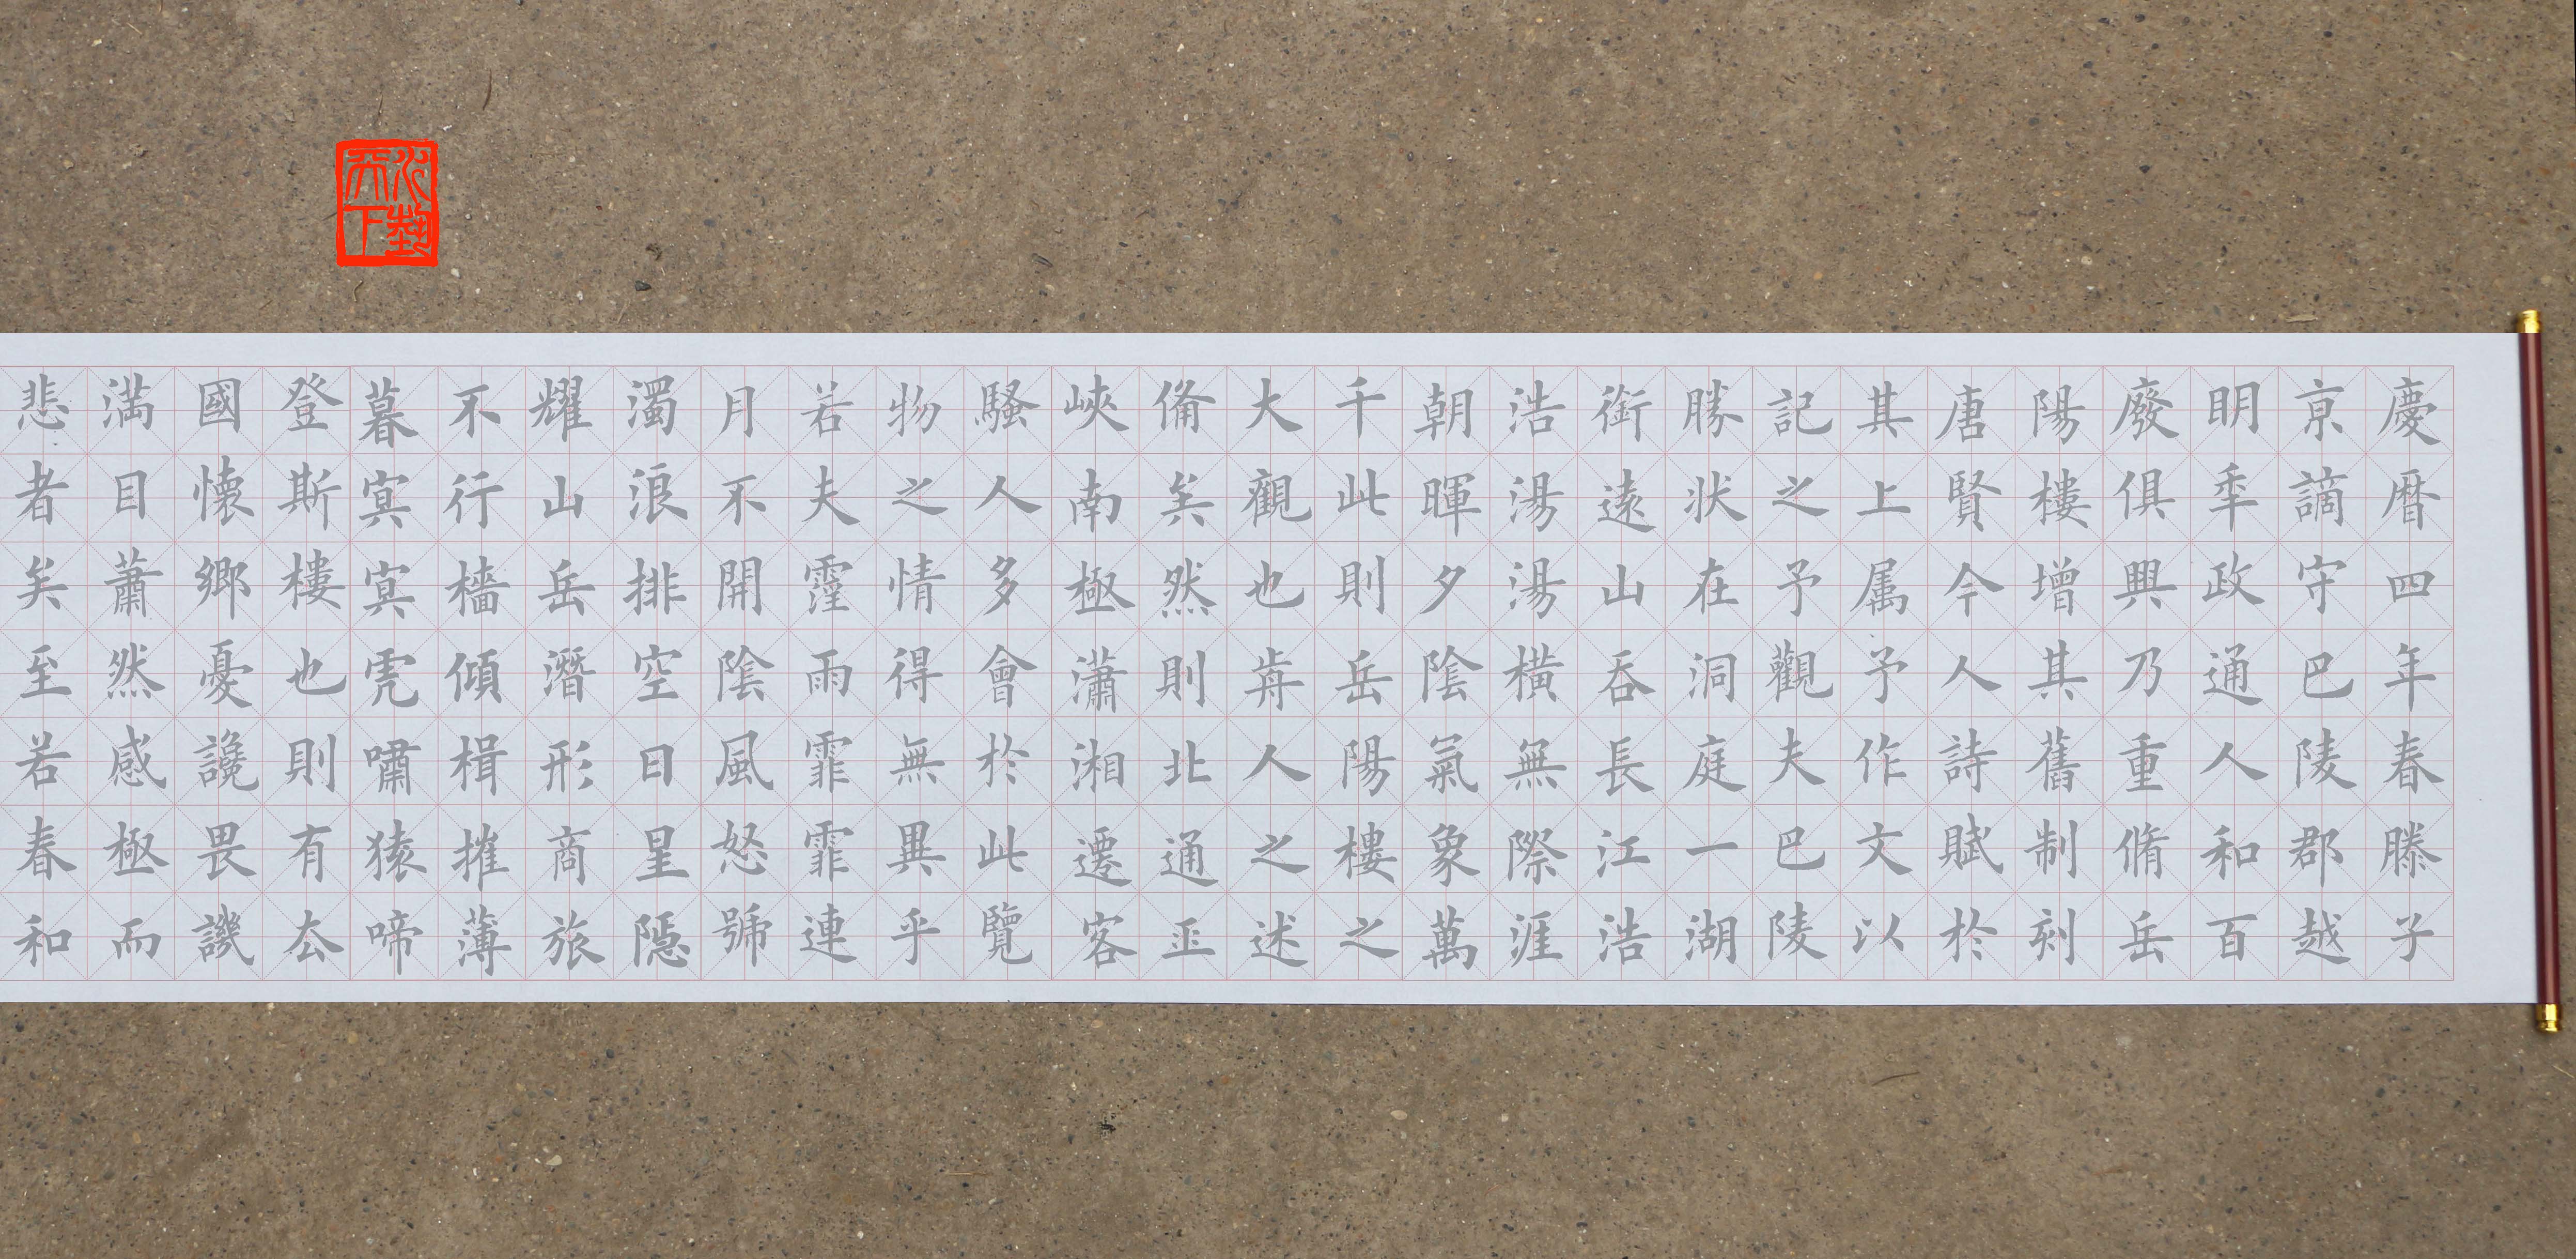 慶曆四年春滕子
京謫守巴陵郡越
明秊政通人和百
廢俱興乃重脩岳
陽樓增其舊制刻
唐賢今人詩賦於
其上属予作文以
記之予觀夫巴陵
勝狀在洞庭一湖
銜遠山吞長江浩
浩湯湯橫無際涯
朝暉夕陰氣象萬
千此則岳陽樓之
大觀也歬人之述
備矣然則北通巫
峽南極瀟湘遷客
騷人多會於此覽
物之情得無異乎
若夫霪雨霏霏連
月不開陰風怒號
濁浪排空日星隱
耀山岳潛形商旅
不行檣傾楫摧薄
暮冥冥虎嘯猿啼
登斯樓也則有去
國懷鄉憂讒畏譏
滿目蕭然感極而
悲者矣至若春和
水墊天下